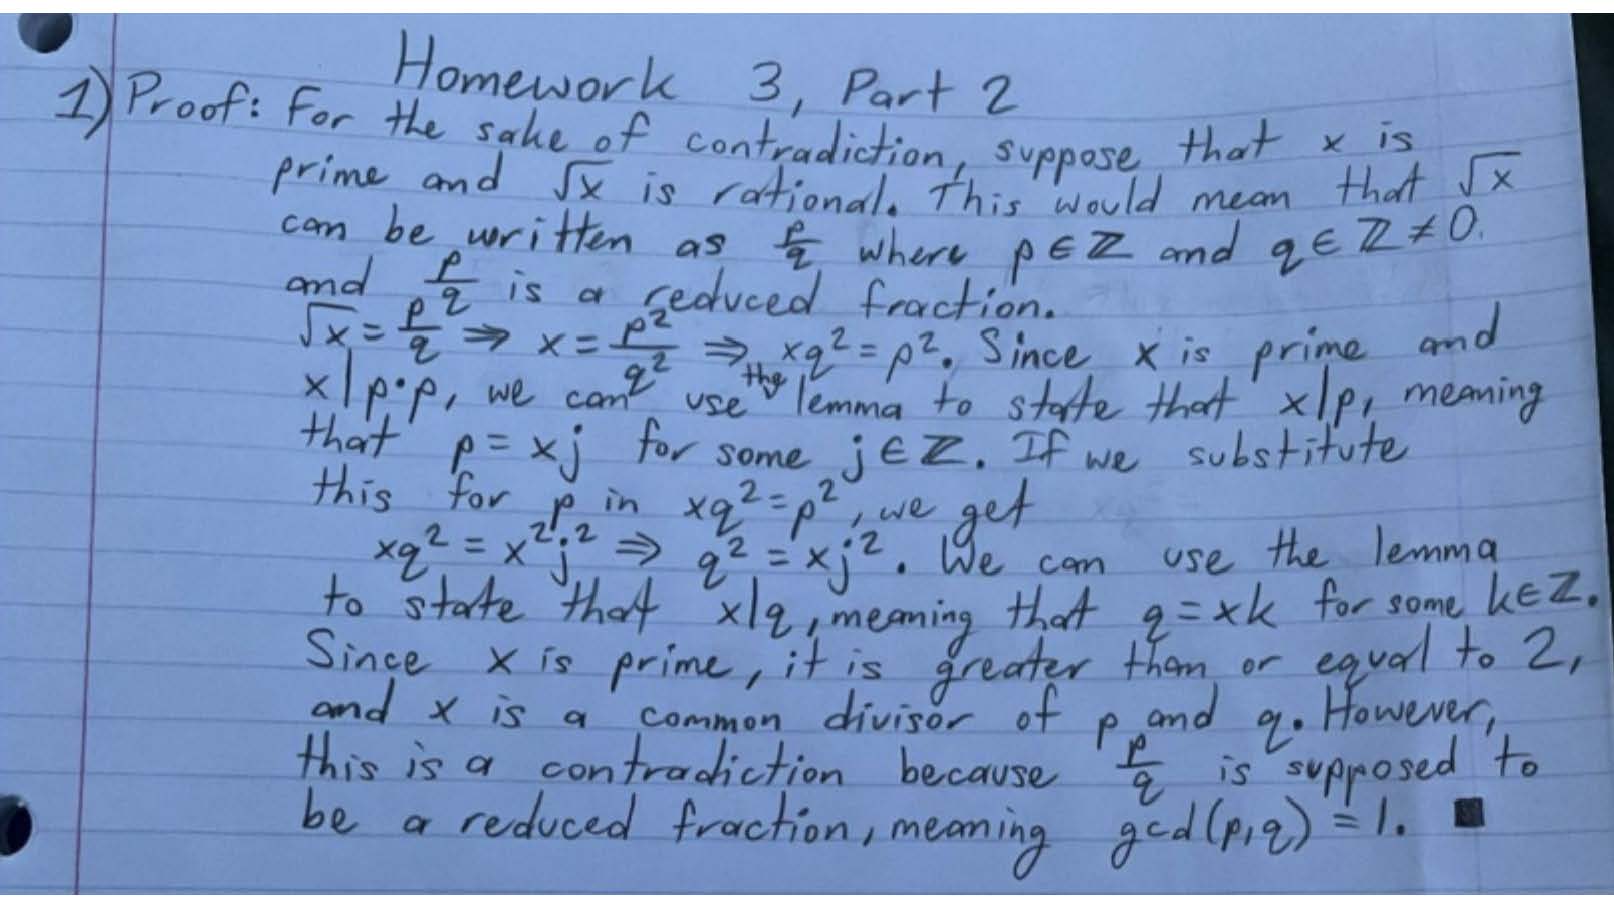 Homework 3, Part 2
1) Proof: For the sake of contradiction, suppose that x is
prime and √x is rational. This would mean that √x
can be written as p/q where p∈ℤ and q∈ℤ≠0.
and p/q is a reduced fraction.
√x = p/q ⇒ x = p²/q² ⇒ xq² = p². Since x is prime and
x|p·p, we can use the lemma to state that x|p, meaning
that p = xj for some j∈ℤ. If we substitute
this for p in xq² = p², we get
xq² = x²j² ⇒ q² = xj². We can use the lemma
to state that x|q, meaning that q = xk for some k∈ℤ.
Since x is prime, it is greater than or equal to 2,
and x is a common divisor of p and q. However,
this is a contradiction because p/q is supposed to
be a reduced fraction, meaning gcd(p,q) = 1. ■